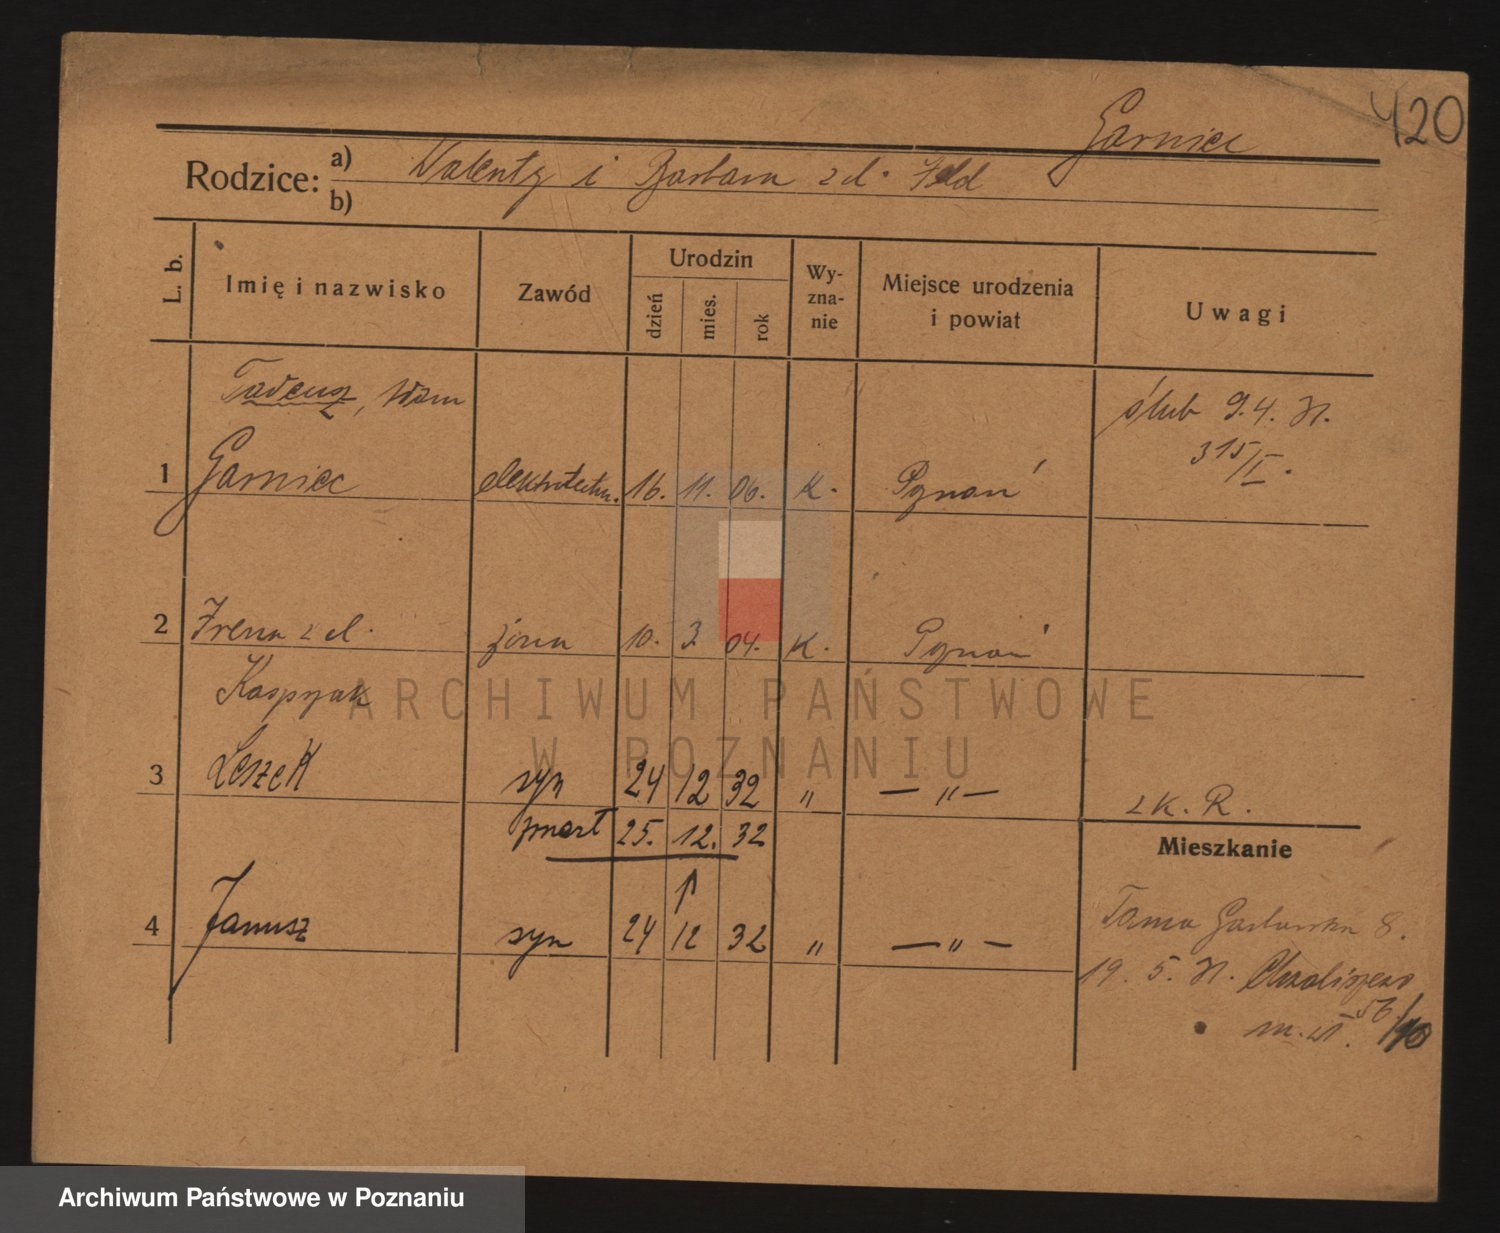 420
Garniec
Rodzice:
a) Walenty i Barbara z d. Feld
b)
L. b.
Imię i nazwisko
Zawód
Urodzin
dzień
mies.
rok
Wy-
zna-
nie
Miejsce urodzenia
i powiat
Uwagi
Tadeusz, Adam
ślub 9.4. 31.
315/I.
1 Garniec elektrotechn. 16. 11. 06. K. Poznań
2 Irena z d. żona 10. 3. 04. K. Poznań
Kasprzak
3 Leszek syn 24 12 32 " — " —
z K. R.
zmarł 25. 12. 32
Mieszkanie
4 Janusz syn 24 12 32 " — " —
Tama Garbarska 8.
19. 5. 31. Chwaliszewo
56/
ARCHIWUM PAŃSTWOWE
W POZNANIU
Archiwum Państwowe w Poznaniu